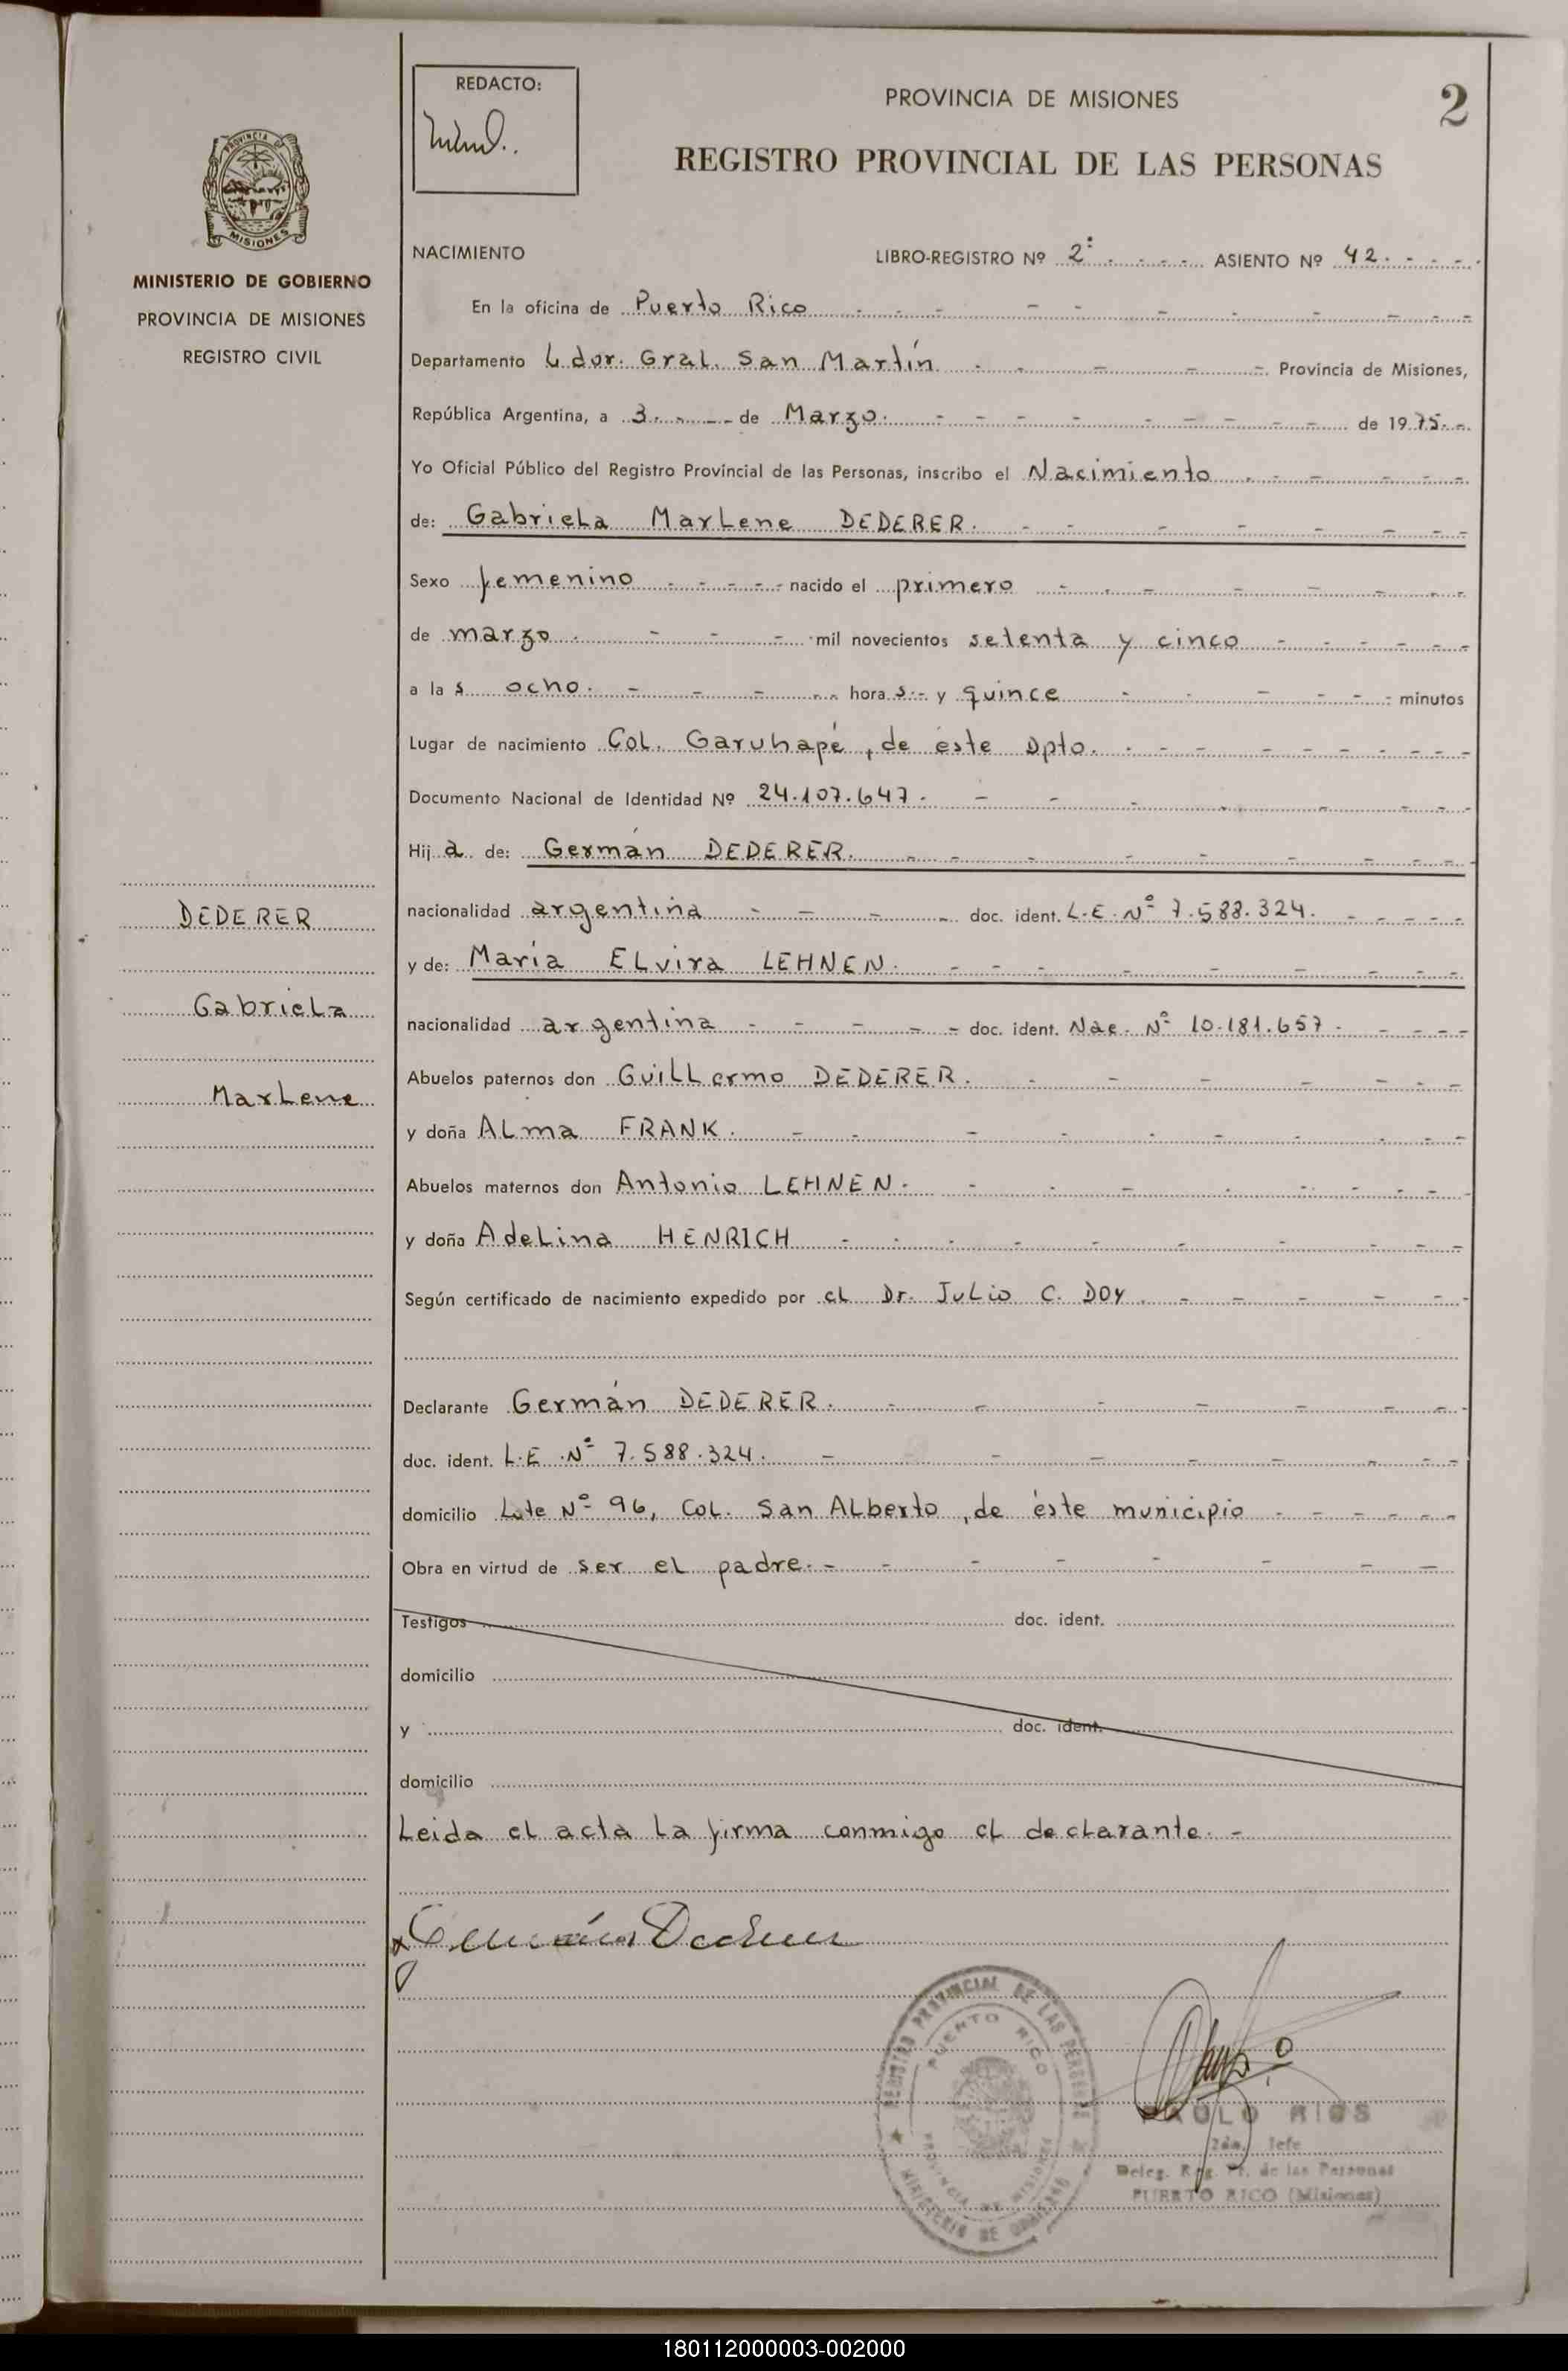 REDACTO:
PROVINCIA DE MISIONES
2
REGISTRO PROVINCIAL DE LAS PERSONAS
PROVINCIA DE
MISIONES
MINISTERIO DE GOBIERNO
PROVINCIA DE MISIONES
REGISTRO CIVIL
NACIMIENTO LIBRO-REGISTRO Nº 2º ASIENTO Nº 42.
En la oficina de Puerto Rico
Departamento Ldor. Gral. San Martín Provincia de Misiones,
República Argentina, a 3 de Marzo. de 1975.
Yo Oficial Público del Registro Provincial de las Personas, inscribo el Nacimiento
de: Gabriela Marlene DEDERER.
Sexo femenino nacido el primero
de marzo mil novecientos setenta y cinco
a las ocho. horas y quince minutos
Lugar de nacimiento Col. Garuhapé, de éste Dpto.
Documento Nacional de Identidad Nº 24.107.647.
Hija de: Germán DEDERER.
nacionalidad argentina doc. ident. L.E. Nº 7.588.324.
y de: María Elvira LEHNEN.
nacionalidad argentina doc. ident. Nac. Nº 10.181.657.
Abuelos paternos don Guillermo DEDERER.
y doña Alma FRANK.
Abuelos maternos don Antonio LEHNEN.
y doña Adelina HENRICH
Según certificado de nacimiento expedido por el Dr. Julio C. DOY
Declarante Germán DEDERER.
doc. ident. L.E. Nº 7.588.324.
domicilio Lote Nº 96, Col. San Alberto, de éste municipio
Obra en virtud de ser el padre.
Testigos doc. ident.
domicilio
y doc. ident.
domicilio
Leida el acta la firma conmigo el declarante.
DEDERER
Gabriela
Marlene
Germán Dederer
REGISTRO PROVINCIAL DE LAS PERSONAS
PUERTO RICO
PROVINCIA DE MISIONES
MINISTERIO DE GOBIERNO
PAOLO RIOS
2do. Jefe
Deleg. Reg. Pr. de las Personas
PUERTO RICO (Misiones)
180112000003-002000